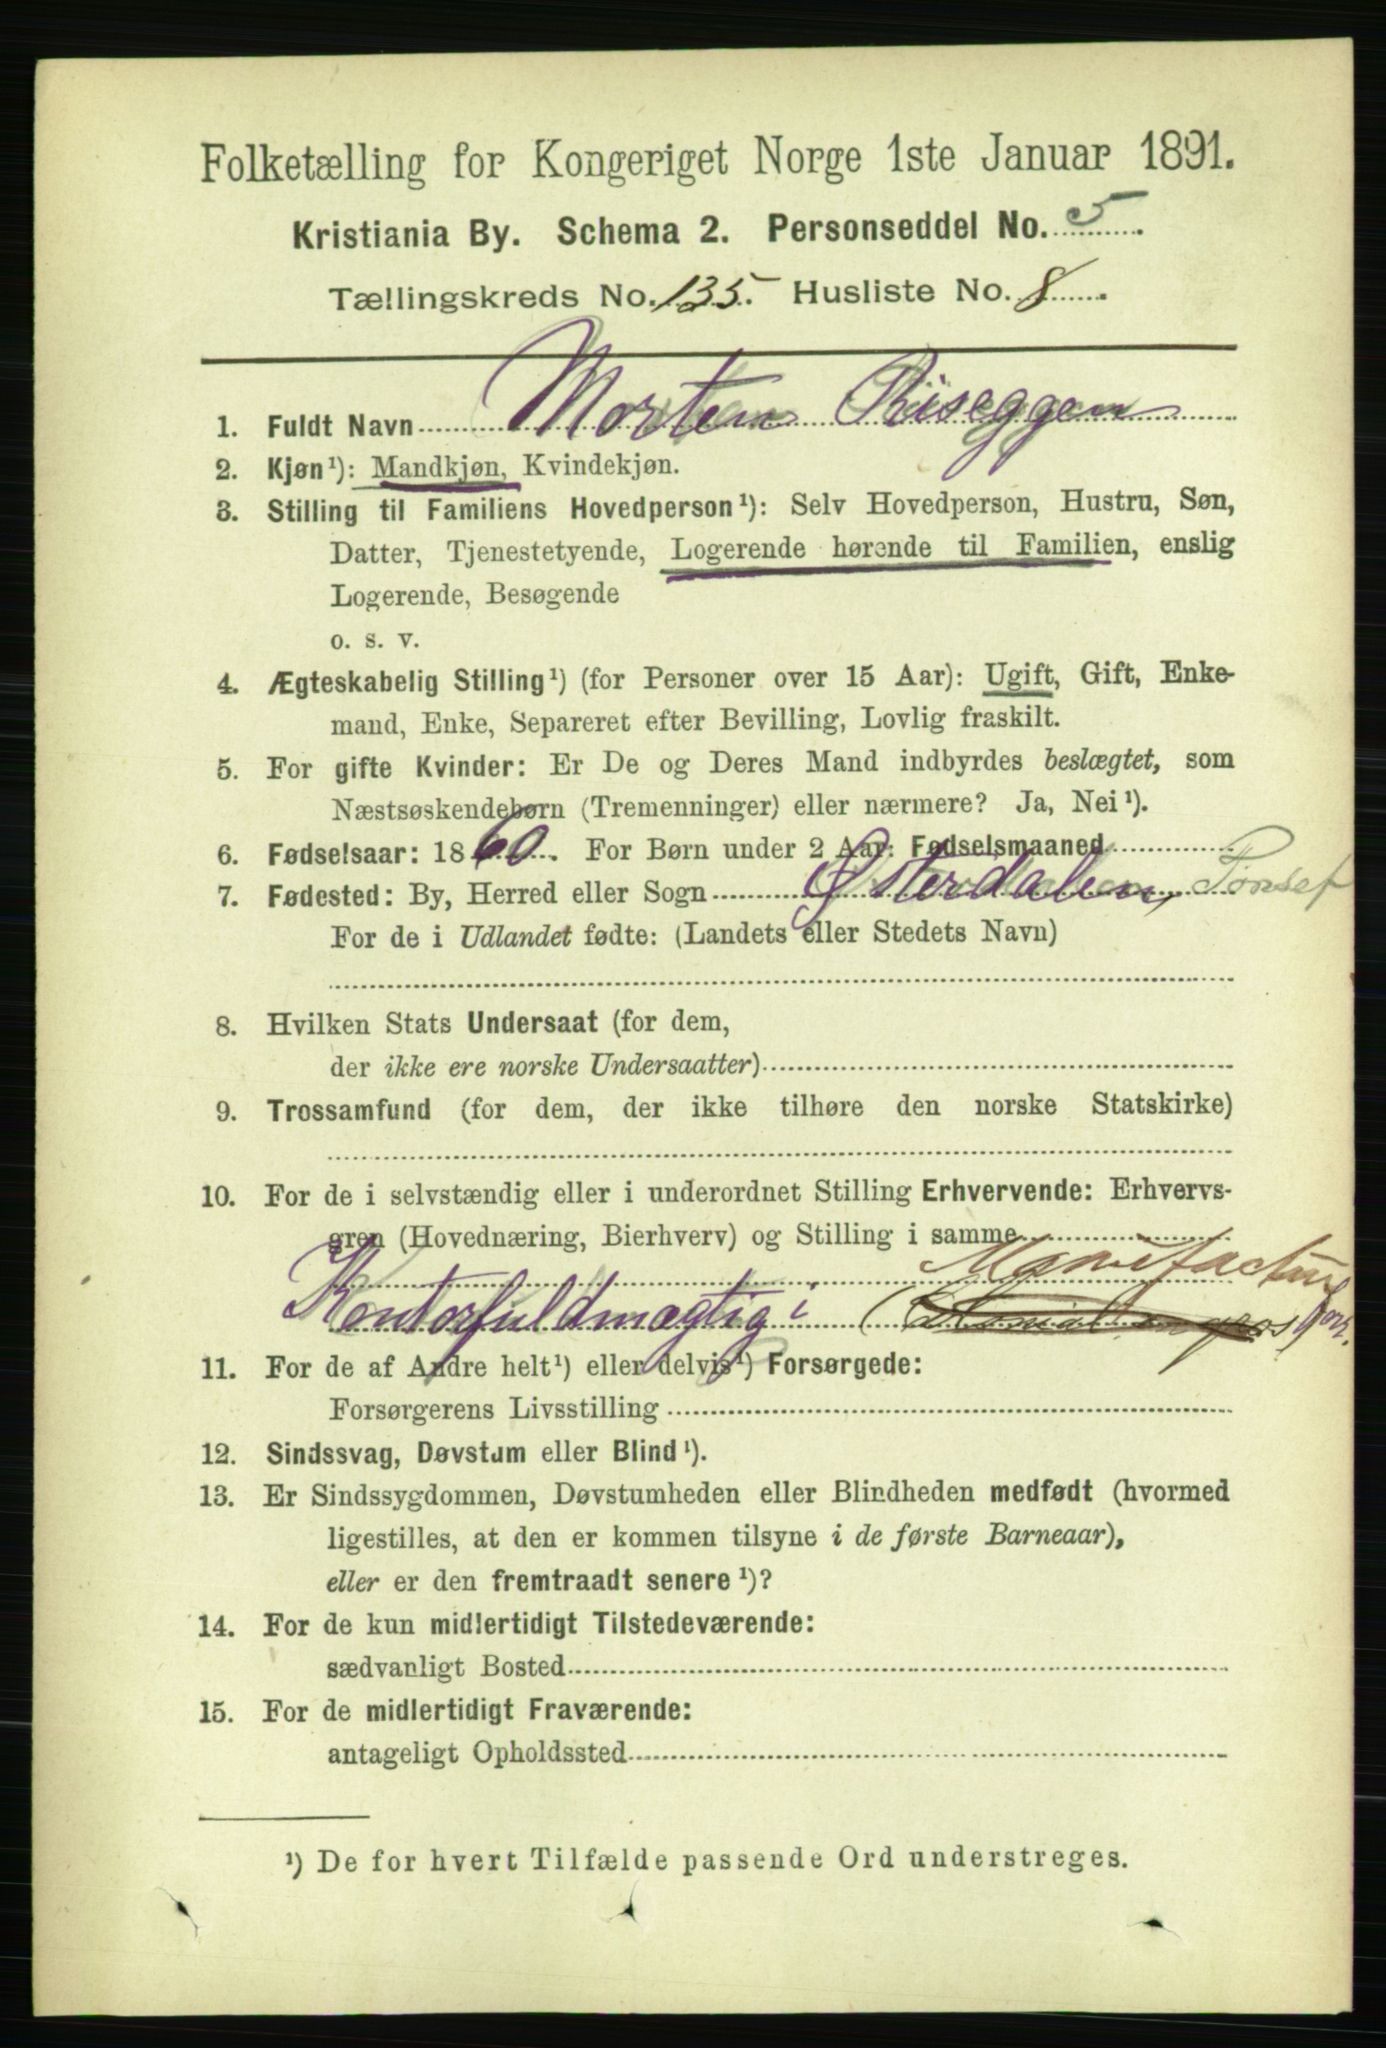 Folketælling for Kongeriget Norge 1ste Januar 1891.
Kristiania By. Schema 2. Personseddel No. 5
Tællingskreds No. 135. Husliste No. 8
1. Fuldt Navn Morten Riseggen
2. Kjøn¹): Mandkjøn, Kvindekjøn.
3. Stilling til Familiens Hovedperson¹): Selv Hovedperson, Hustru, Søn,
Datter, Tjenestetyende, Logerende hørende til Familien, enslig
Logerende, Besøgende
o. s. v.
4. Ægteskabelig Stilling¹) (for Personer over 15 Aar): Ugift, Gift, Enke-
mand, Enke, Separeret efter Bevilling, Lovlig fraskilt.
5. For gifte Kvinder: Er De og Deres Mand indbyrdes beslægtet, som
Næstsøskendebørn (Tremenninger) eller nærmere? Ja, Nei¹).
6. Fødselsaar: 1860. For Børn under 2 Aar: Fødselsmaaned
7. Fødested: By, Herred eller Sogn Østerdalen, Tonset
For de i Udlandet fødte: (Landets eller Stedets Navn)
8. Hvilken Stats Undersaat (for dem,
der ikke ere norske Undersaatter)
9. Trossamfund (for dem, der ikke tilhøre den norske Statskirke)
10. For de i selvstændig eller i underordnet Stilling Erhvervende: Erhvervs-
gren (Hovednæring, Bierhverv) og Stilling i samme
Manufactur
Kontorfuldmægtig i (Kolonial engros) forr.
11. For de af Andre helt¹) eller delvis¹) Forsørgede:
Forsørgerens Livsstilling
12. Sindssvag, Døvstum eller Blind¹).
13. Er Sindssygdommen, Døvstumheden eller Blindheden medfødt (hvormed
ligestilles, at den er kommen tilsyne i de første Barneaar),
eller er den fremtraadt senere¹)?
14. For de kun midlertidigt Tilstedeværende:
sædvanligt Bosted
15. For de midlertidigt Fraværende:
antageligt Opholdssted
¹) De for hvert Tilfælde passende Ord understreges.